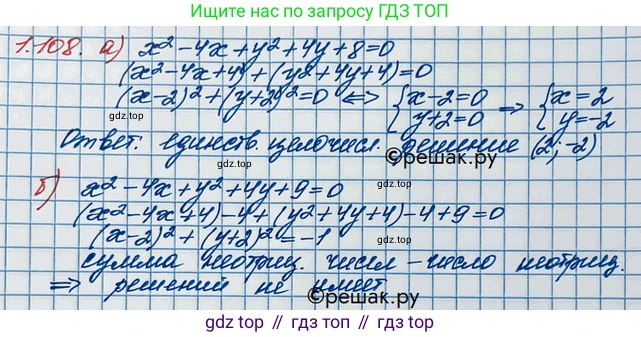 Ищите нас
по запросу ГДЗ ТОП
1.108. а) x² - 4x + y² + 4y + 8 = 0
(x² - 4x + 4) + (y² + 4y + 4) = 0
(x-2)² + (y+2)² = 0 ⇔ { x-2=0 y+2=0 ⇒ { x=2 y=-2
gdz.top
Ответ: единств. целочисл. решение (2; -2)
©reшак.ру
б) x² - 4x + y² + 4y + 9 = 0
(x² - 4x + 4) - 4 + (y² + 4y + 4) - 4 + 9 = 0
(x-2)² + (y+2)² = -1
gdz.top
сумма неотриц. чисел - число неотриц.
⇒ решений не имеет
©reшак.ру
gdz.top // гдз.топ // gdz.top